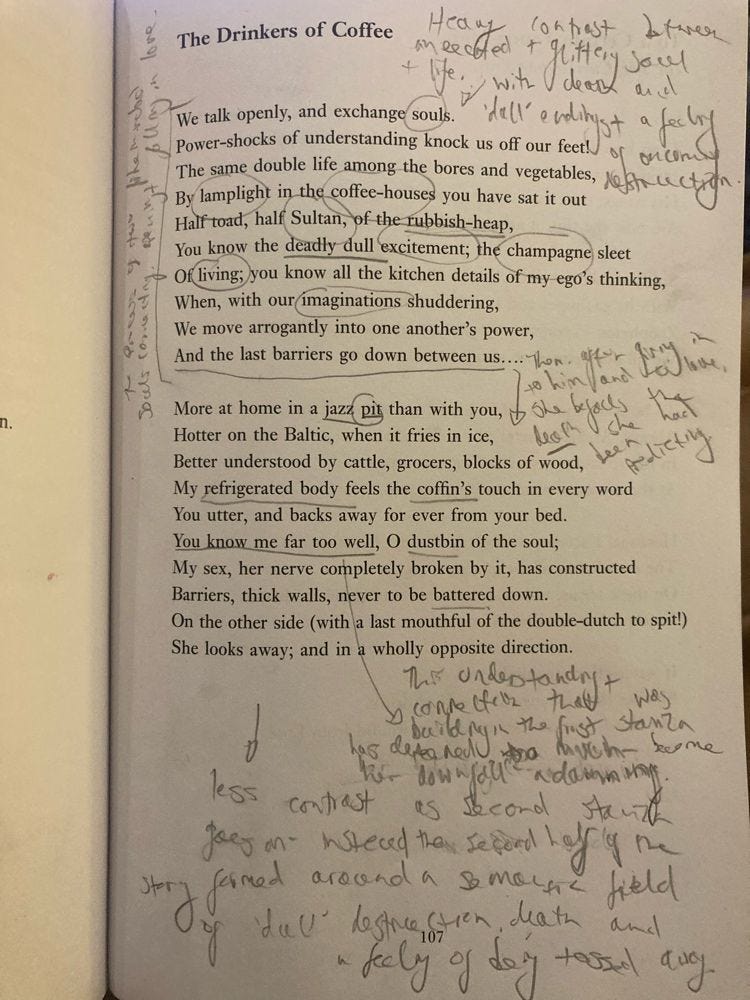 The Drinkers of Coffee
Heavy contrast between
+ glittery soul
+ life. with death and
'dull' endings + a feeling
of oncoming
destruction.
We talk openly, and exchange souls.
Power-shocks of understanding knock us off our feet!
The same double life among the bores and vegetables,
By lamplight in the coffee-houses you have sat it out
Half toad, half Sultan, of the rubbish-heap,
You know the deadly dull excitement; the champagne sleet
Of living; you know all the kitchen details of my ego's thinking,
When, with our imaginations shuddering,
We move arrogantly into one another's power,
And the last barriers go down between us....
souls connecting. falling in love.
Then, after giving in
to him and love,
she befalls the
death she had
been predicting
More at home in a jazz pit than with you,
Hotter on the Baltic, when it fries in ice,
Better understood by cattle, grocers, blocks of wood,
My refrigerated body feels the coffin's touch in every word
You utter, and backs away for ever from your bed.
You know me far too well, O dustbin of the soul;
My sex, her nerve completely broken by it, has constructed
Barriers, thick walls, never to be battered down.
On the other side (with a last mouthful of the double-dutch to spit!)
She looks away; and in a wholly opposite direction.
This understanding +
connection that was
building in the first stanza
has become
her downfall
less contrast as second stanza
goes on - instead the second half of the
story formed around a semantic field
of 'dull' destruction, death and
a feeling of being tossed away
107
n.